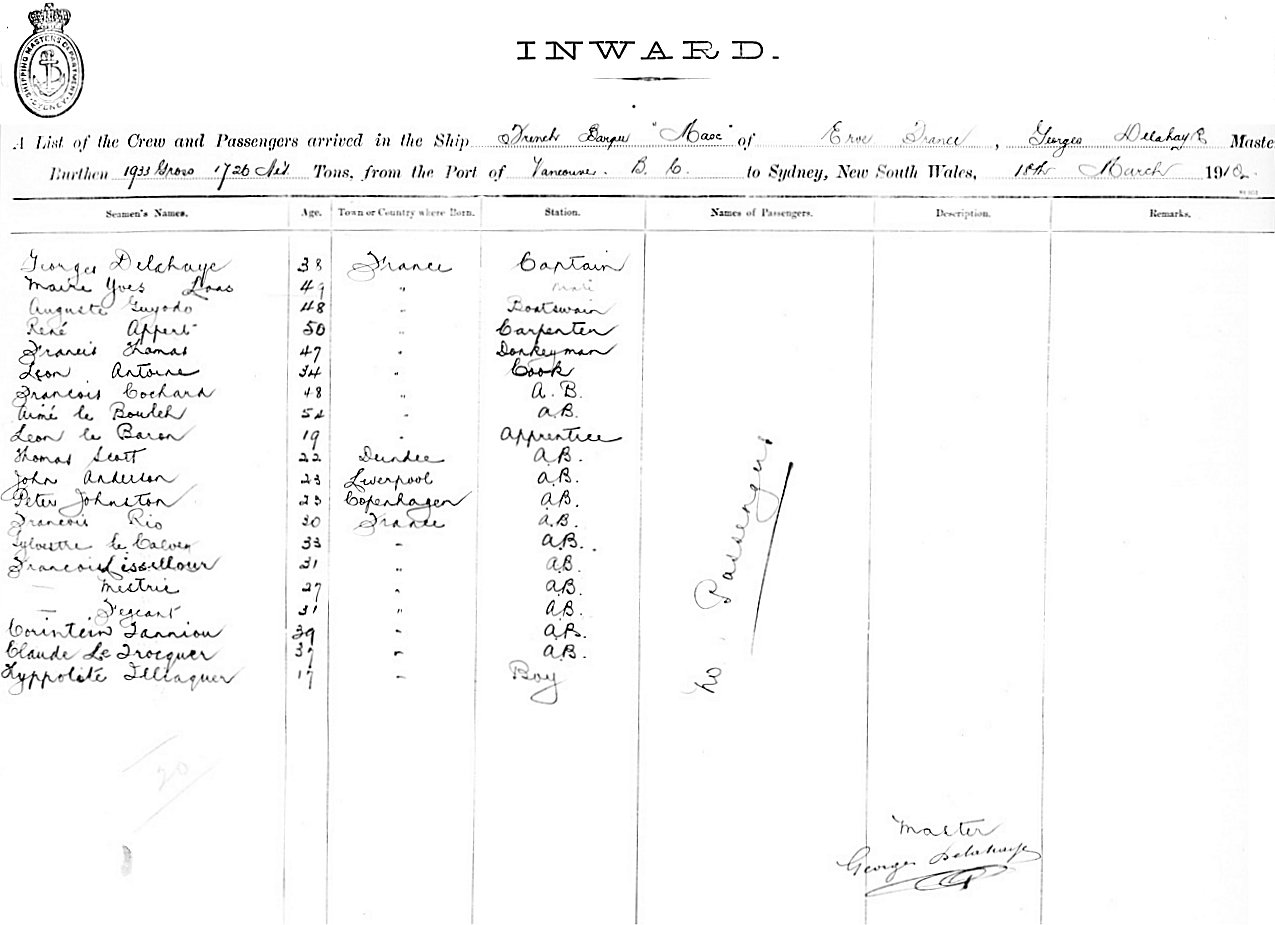 SHIPPING MASTERS DEPARTMENT SYDNEY
INWARD.
A List of the Crew and Passengers arrived in the Ship French Barque "Maec" of France, Georges Delahaye Maste
Burthen 1933 Gross 1726 Net Tons, from the Port of Vancouver. B. C. to Sydney, New South Wales, 18th March 191
Seamen's Names. Age. Town or Country where Born. Station. Names of Passengers. Description. Remarks.
Georges Delahaye 38 France Captain
Marie Yves 49 " Mate
Auguste Guyodo 48 " Boatswain
René Appert 50 " Carpenter
Francis Thomas 47 " Donkeyman
Leon Antoine 34 " Cook
Francois Cochard 48 " A.B.
Aimé le Boulch 54 " A.B.
Leon le Baron 19 " Apprentice
Thomas Scott 22 Dundee A.B.
John Anderson 23 Liverpool A.B.
Peter Johnston 23 Copenhagen A.B.
Francois Rio 30 France A.B.
Sylvestre le Calvez 33 " A.B.
Francois Lissillour 31 " A.B.
— Mestric 27 " A.B.
— Tegeant 31 " A.B.
Corintein Tanniou 39 " A.B.
Claude Le Trocquer 37 " A.B.
Hyppolité 17 " Boy
No Passengers
20
Master
Georges Delahaye